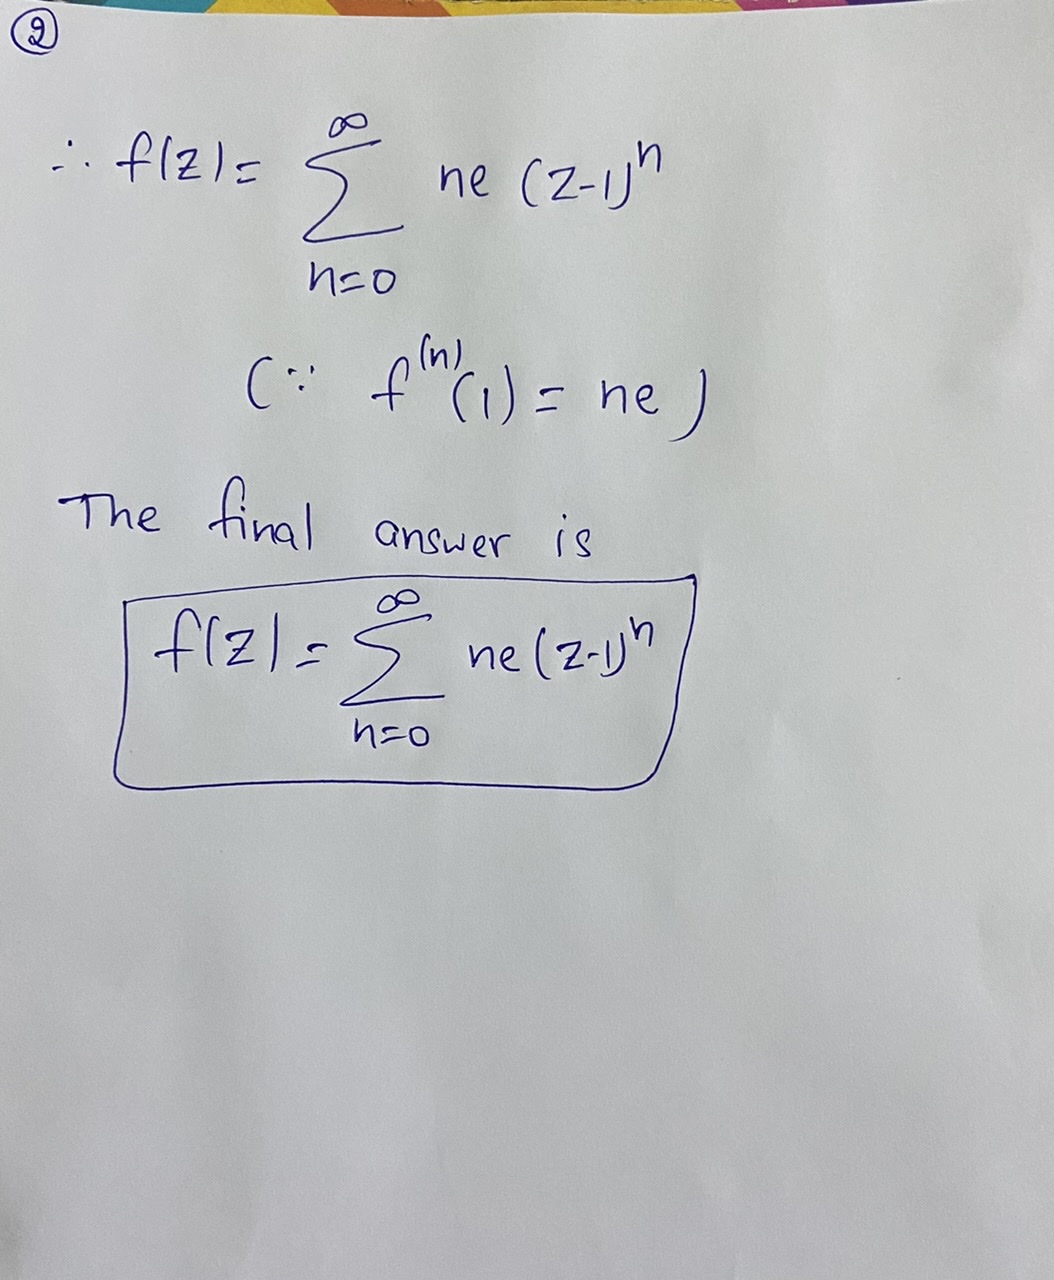 ②
∴ f(z) = ∞ Σ n=0 ne (z-1)^n
(∵ f^(n)(1) = ne)
The final answer is
f(z) = ∞ Σ n=0 ne (z-1)^n